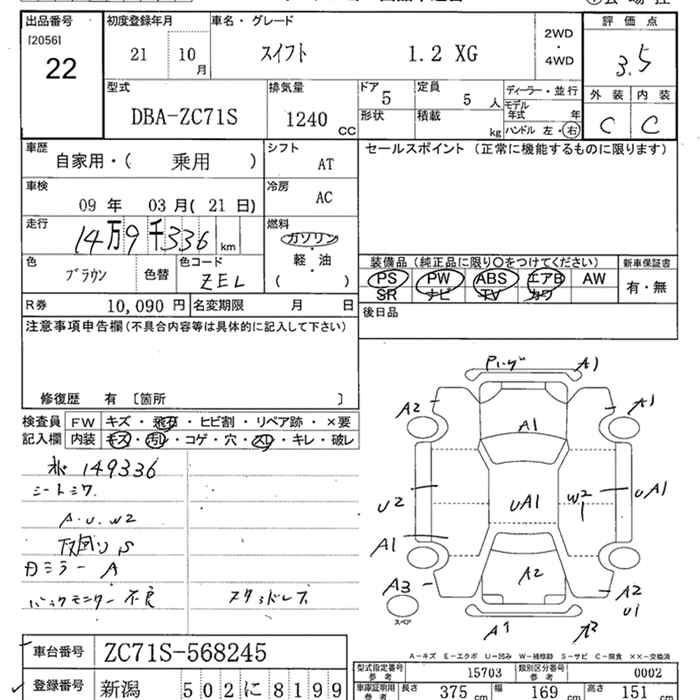 出品番号 初度登録年月 車名・グレード 2WD・4WD 評価点
[2056] 22 21 10月 スイフト 1.2 XG 3.5
型式 排気量 ドア 5 定員 5人 ディーラー・並行 外装 内装
DBA-ZC71S 1240 CC 形状 積載 kg モデル年式 年 C C
ハンドル 左・右
車歴 自家用・( 乗用 ) シフト AT セールスポイント (正常に機能するものに限ります)
車検 09年 03月(21日) 冷房 AC
走行 14万9千336 km 燃料 ガソリン・軽・油 ( )
色 ブラウン 色替 色コード ZEL
装備品 (純正品に限り○をつけてください) 新車保証書
PS PW ABS エアB AW 有・無
SR ナビ TV カワ
R券 10,090円 名変期限 月 日 後日品
注意事項申告欄 (不具合内容等は具体的に記入して下さい)
修復歴 有 [箇所 ]
検査員 FW キズ・飛石・ヒビ割・リペア跡・×要
記入欄 内装 キズ・汚レ・コゲ・穴・スレ・キレ・破レ
149336
A・U・W2
下回り S
カミラー A
バックモニター不良 スタッドレス
A1
A2 A1 A1
U2 UA1 W2 UA1
A1
A3 A2 A2
スペア U1
A1 A2
A-キズ E-エクボ U-凹み W-補修跡 S-サビ C-腐食 ××-交換済
車台番号 ZC71S-568245
型式指定番号 参考 15703 類別区分番号 参考 0002
登録番号 新潟 502に8199
車庫証明用 参考 長さ 375cm 幅 169cm 高さ 151cm